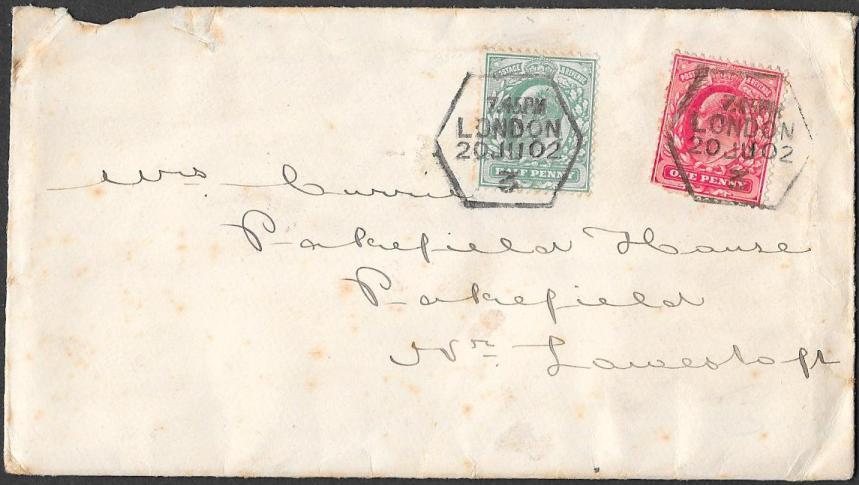 POSTAGE & REVENUE
7.45PM
LONDON
20 JU 02
3
HALF PENNY
POSTAGE & REVENUE
7.45PM
LONDON
20 JU 02
3
ONE PENNY
Mrs. Currie
Pakefield House
Pakefield
Nr. Lowestoft